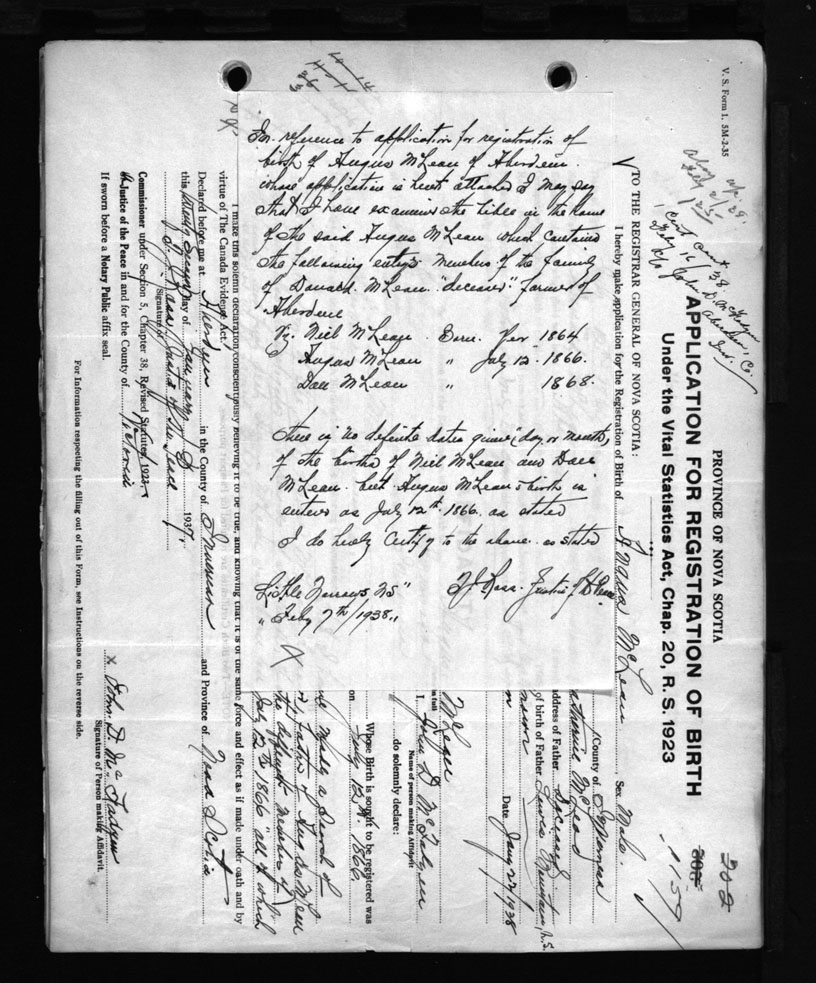 In reference to application for registration of
birth of Angus McLean of Aberdeen
whose application is hereto attached I may say
that I have examined the Bible in the home
of the said Angus McLean which contained
the following entrys members of the family
of Donald McLean "deceased" farmer of
Aberdeen
Viz. Neil McLean Born. Yer 1864
Angus McLean " July 12. 1866.
Dan McLean " 1868.
there is no definite dates given, day, or month,
of the births of Neil McLean and Dan
McLean. but Angus McLean's birth is
entered as July 12th. 1866. as stated
I do herby Certify to the above as stated
Little Narrows NS"
J. Ross. Justice of D Peace.
" Feby 7th/1938.,
X
V. S. Form 1. 5M-2-35
PROVINCE OF NOVA SCOTIA
APPLICATION FOR REGISTRATION OF BIRTH
Under the Vital Statistics Act, Chap. 20, R. S. 1923
202
TO THE REGISTRAR GENERAL OF NOVA SCOTIA:
I hereby make application for the Registration of Birth of Angus McLean Sex Male.
County of Inverness
Catherine McLeod
address of Father Deceased
of birth of Father Lewis Mountain, N.S.
Date Jany 22/1938
McLean
I, John D McFadyen
Name of person making Affidavit
do solemnly declare:
Whose Birth is sought to be registered was
on July 12th. 1866
made a Search of
Father of Angus McLean
the different members of
July 12th 1866 all of which
I make this solemn declaration conscientiously believing it to be true, and knowing that it is of the same force and effect as if made under oath and by
virtue of The Canada Evidence Act.
Declared before me at Aberdeen in the County of Inverness and Province of Nova Scotia
this day of January D 1937.
J. Ross Justice of the Peace
Signature of
x John D. McFadyen
Signature of Person making Affidavit.
Commissioner under Section 5, Chapter 38, Revised Statutes, 1923.
A Justice of the Peace in and for the County of Victoria
If sworn before a Notary Public affix seal.
For Information respecting the filling out of this Form, see Instructions on the reverse side.